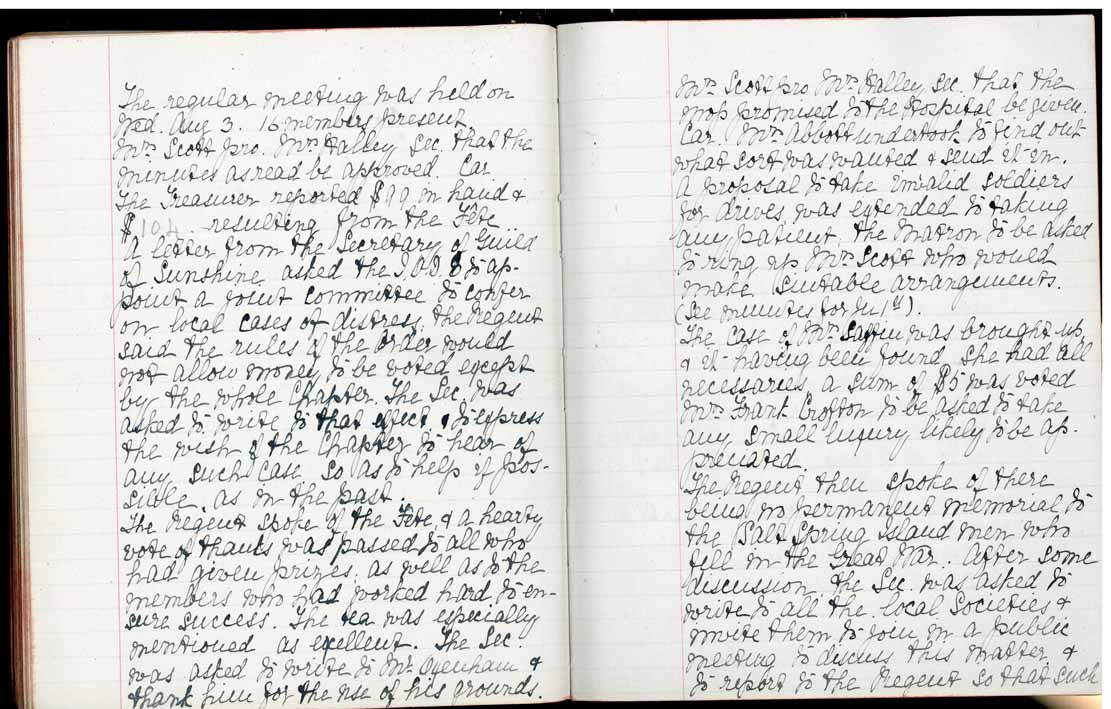 The regular meeting was held on
Wed. Aug 3. 16 members present
Mrs Scott pro. Mrs Halley Sec. that the
minutes as read be approved. Car.
The Treasurer reported $99 in hand &
$104 resulting from the Fête.
A letter from the Secretary of Guild
of Sunshine asked the I.O.D.E to ap-
point a joint committee to confer
on local cases of distress, the Regent
said the rules of the Order would
not allow money to be voted except
by the whole Chapter. The Sec. was
asked to write to that effect & to express
the wish of the Chapter to hear of
any such case so as to help if pos-
sible, as in the past.
The Regent spoke of the Fête, & a hearty
vote of thanks was passed to all who
had given prizes, as well as to the
members who had worked hard to en-
sure success. The tea was especially
mentioned as excellent. The Sec.
was asked to write to Mr. Oxenham &
thank him for the use of his grounds.
Mrs Scott pro Mrs Halley sec. that the
mop promised to the Hospital be given.
Car. Mrs Abbott undertook to find out
what sort was wanted & send it in.
A proposal to take invalid soldiers
for drives, was extended to taking
any patient, the Matron to be asked
to ring up Mrs Scott who would
make suitable arrangements.
(See minutes for
The Case of Mrs was brought up,
& it having been found she had all
necessaries, a sum of $5 was voted
Mrs Frank Crofton to be asked to take
any small luxury likely to be ap-
preciated.
The Regent then spoke of there
being no permanent memorial to
the Salt Spring Island men who
fell in the Great War. After some
discussion, the Sec. was asked to
write to all the local Societies &
invite them to join in a public
meeting to discuss this matter, &
to report to the Regent so that such